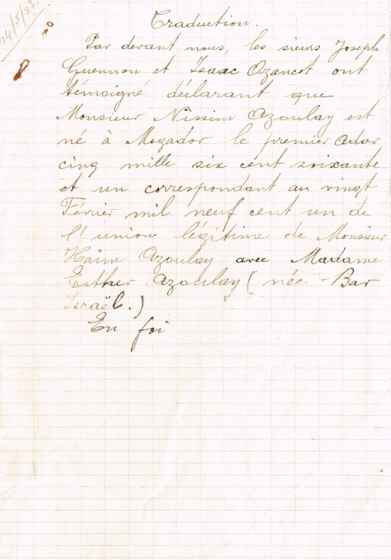 24/5/28.
Traduction.
Par devant nous, les sieurs Joseph
Guennon et Isaac Azancot ont
témoigné déclarant que
Monsieur Nissim Azoulay est
né à Mogador le premier Adar
cinq mille six cent soixante
et un correspondant au vingt
Février mil neuf cent un de
l'union légitime de Monsieur
Haïm Azoulay avec Madame
Esther Azoulay (née Bar
Israël.)
En foi